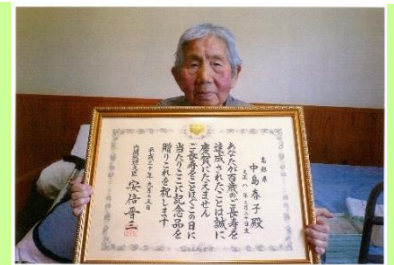 中島春子殿
大正八年
あなたが百歳のご長寿を
達成されたことは誠に
慶賀にたえません
ご長寿をことほぐこの日に
当たりここに記念品を
贈りこれを祝します
平成三十年九月十五日
内閣総理大臣 安倍晋三